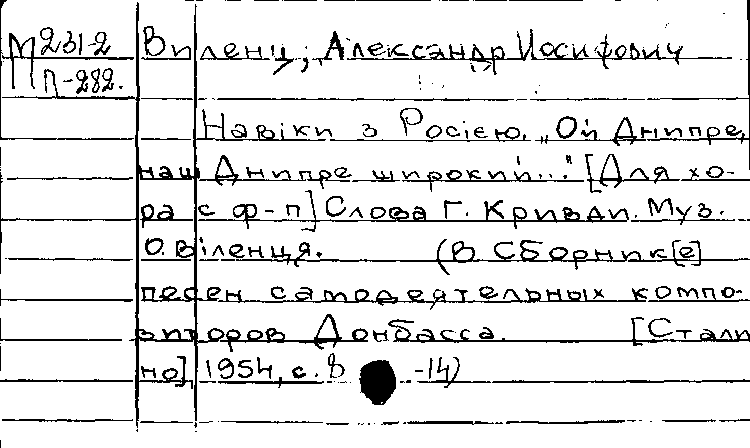 М 231-2
П-282.
Виленц, Александр Иосифович
Навіки з Росією. „Ой Днипре,
наш Днипре широкий..." [Для хо-
ра с ф-п] Слова Г. Кривди. Муз.
О. Віленця. (В Сборник[е]
песен самодеятельных компо-
зиторов Донбасса. [Стали
но], 1954, с. 8 -14)